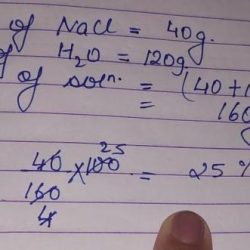 of NaCl = 40g.
of H₂O = 120g
of soln. = (40+1
= 160
40/160 × 100 = 25 %
25
4